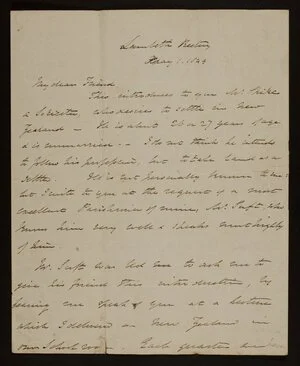 Lambeth Rectory
May 1. 1844
My dear Friend
This introduces to you Mr.
a Solicitor, who desires to settle in New
Zealand — He is about 26 or 27 years of age
& is unmarried — I do not think he intends
to follow his profession, but to take Land as a
Settler. He is not personally known to me
but I write to you at the request of a most
excellent Parishioner of mine, Mr. Tuft who
knows him very well & thinks most highly
of him.
Mr. Tuft was led me to ask me to
give his friend this introduction, by
hearing me speak of you at a lecture
which I delivered on New Zealand in
our School room. Each quarter